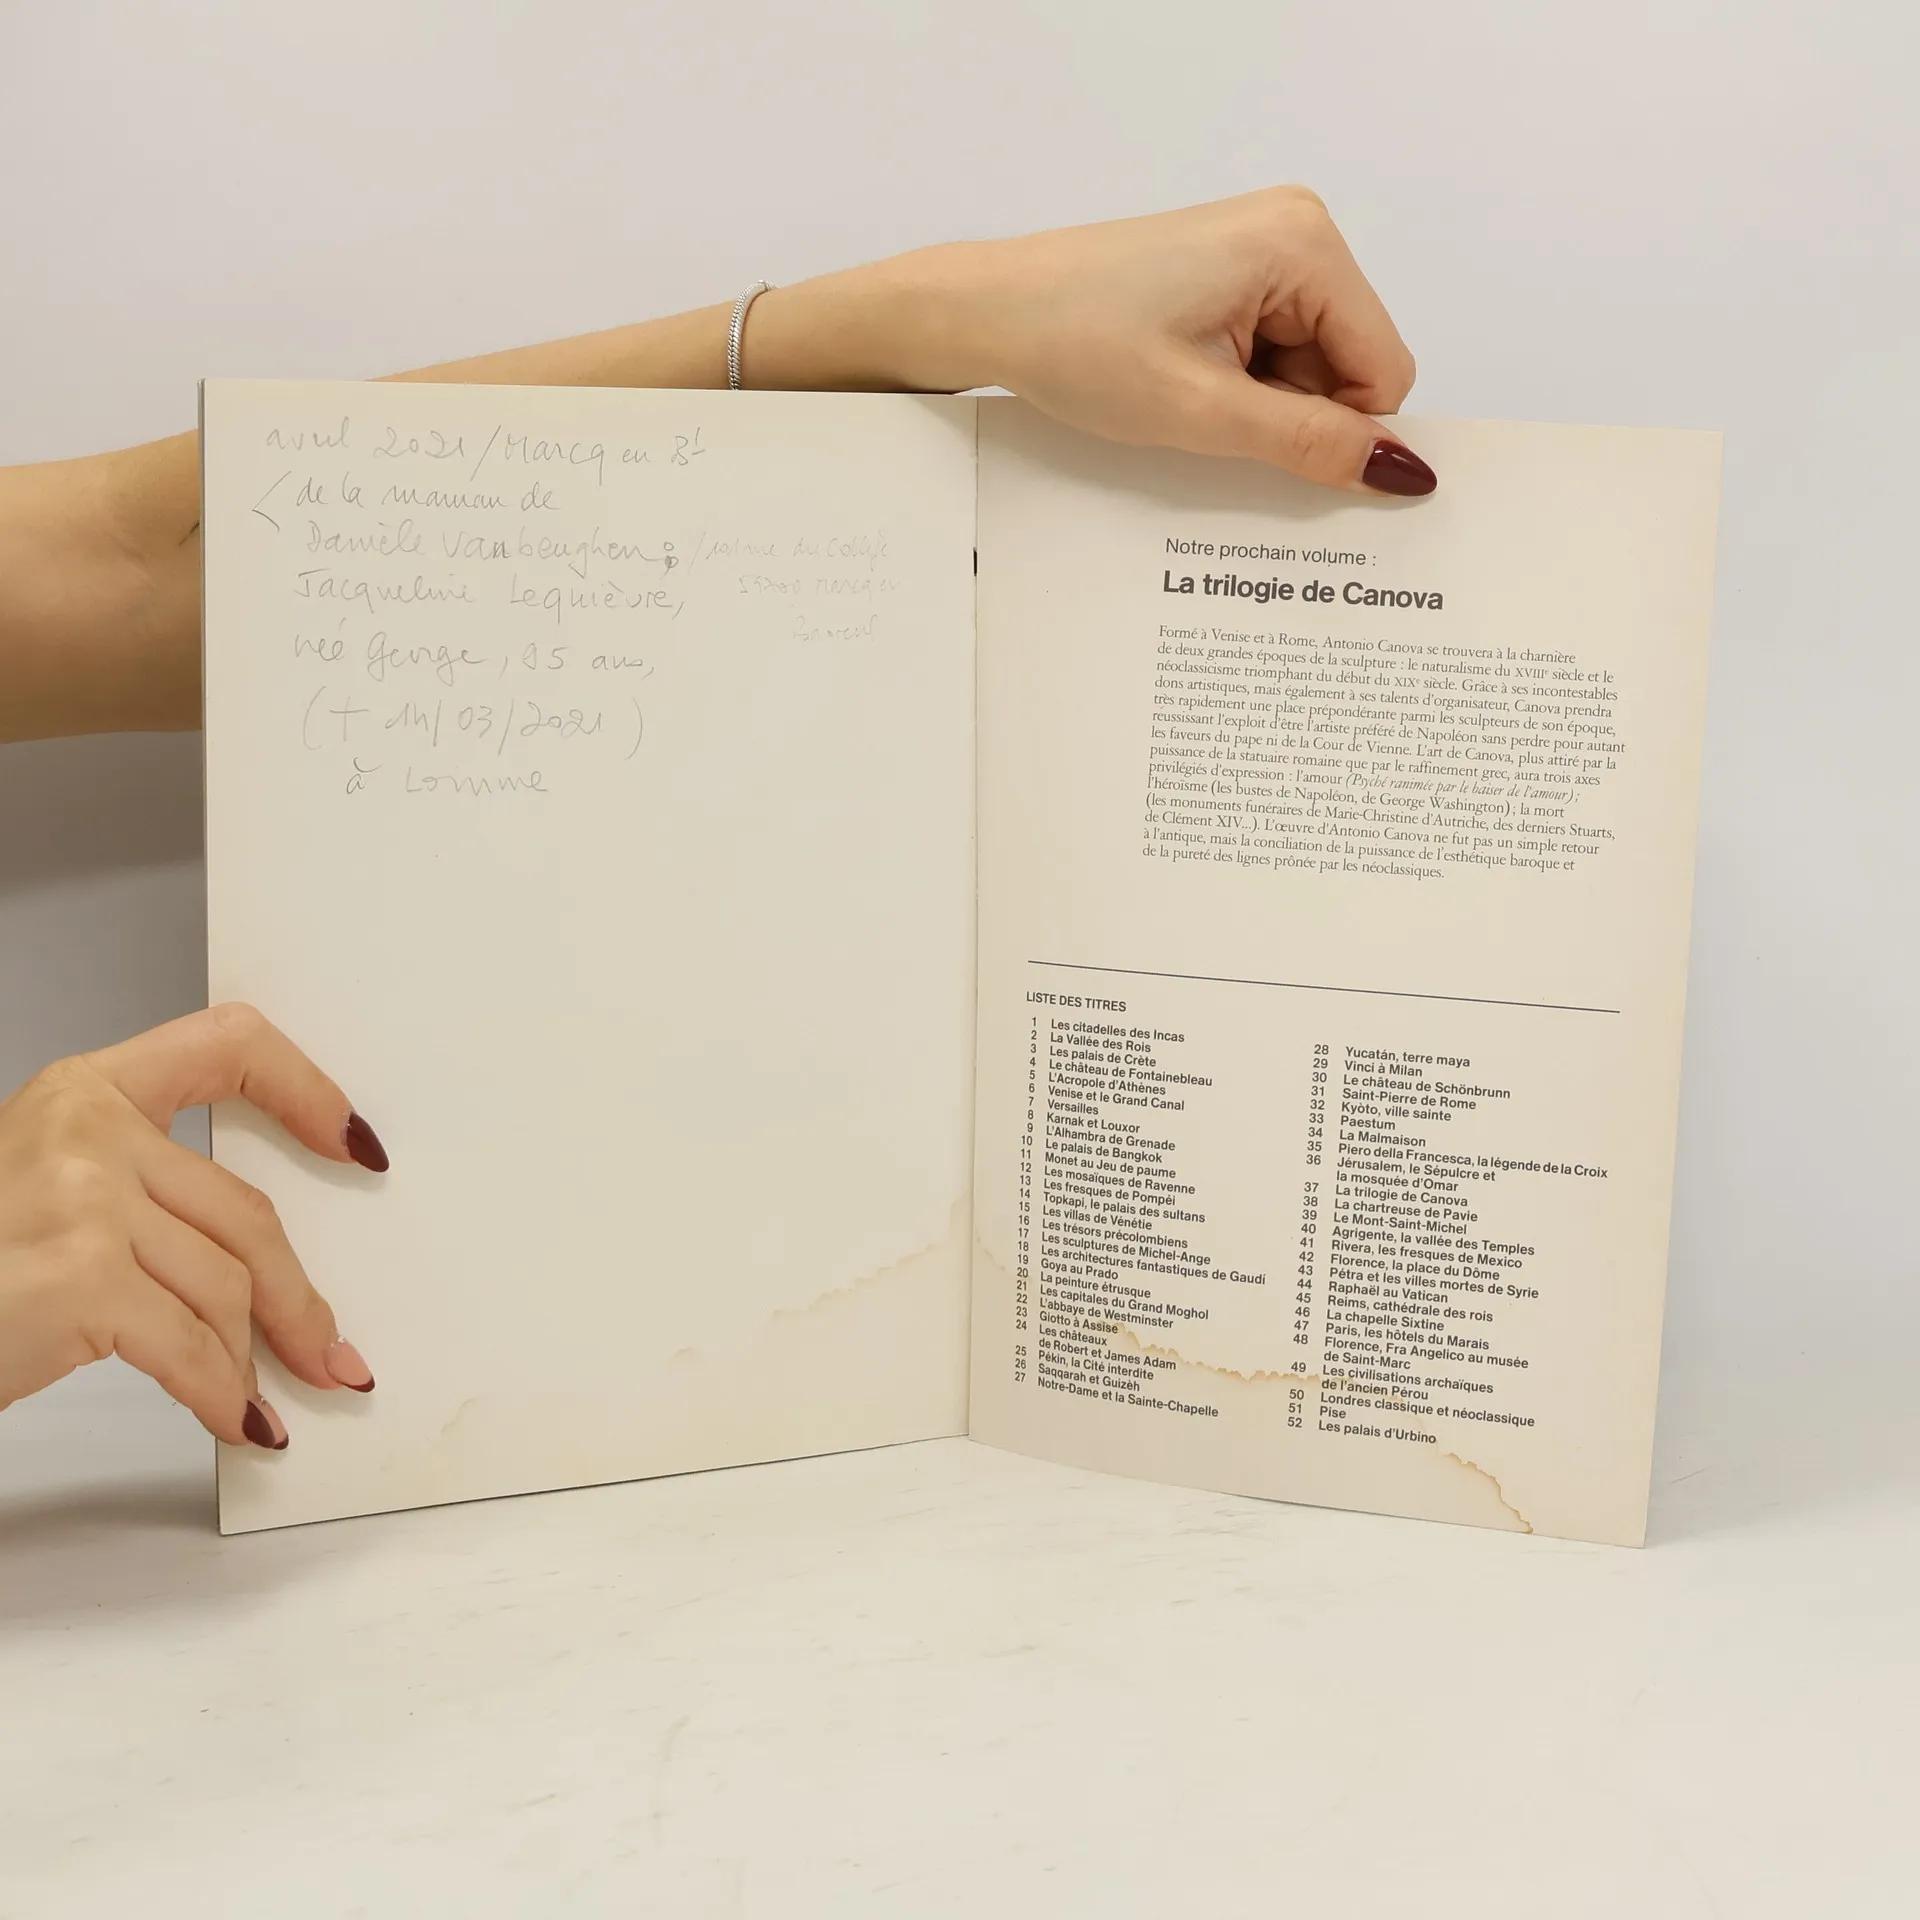 avril 2021/Marcq en Bl
< de la maman de
Danièle Vanbeughen :
Jacqueline Lequièvre,
née George, 95 ans,
(+ 14/03/2021)
à Lomme
du Collège
59700 Marcq en
Baroeul
Notre prochain volume :
La trilogie de Canova
Formé à Venise et à Rome, Antonio Canova se trouvera à la charnière
de deux grandes époques de la sculpture : le naturalisme du XVIIIe siècle et le
néoclassicisme triomphant du début du XIXe siècle. Grâce à ses incontestables
dons artistiques, mais également à ses talents d'organisateur, Canova prendra
très rapidement une place prépondérante parmi les sculpteurs de son époque,
réussissant l'exploit d'être l'artiste préféré de Napoléon sans perdre pour autant
les faveurs du pape ni de la Cour de Vienne. L'art de Canova, plus attiré par la
puissance de la statuaire romaine que par le raffinement grec, aura trois axes
privilégiés d'expression : l'amour (Psyché ranimée par le baiser de l'amour) ;
l'héroïsme (les bustes de Napoléon, de George Washington) ; la mort
(les monuments funéraires de Marie-Christine d'Autriche, des derniers Stuarts,
de Clément XIV...). L'œuvre d'Antonio Canova ne fut pas un simple retour
à l'antique, mais la conciliation de la puissance de l'esthétique baroque et
de la pureté des lignes prônée par les néoclassiques.
LISTE DES TITRES
1 Les citadelles des Incas
2 La Vallée des Rois
3 Les palais de Crète
4 Le château de Fontainebleau
5 L'Acropole d'Athènes
6 Venise et le Grand Canal
7 Versailles
8 Karnak et Louxor
9 L'Alhambra de Grenade
10 Le palais de Bangkok
11 Monet au Jeu de paume
12 Les mosaïques de Ravenne
13 Les fresques de Pompéi
14 Topkapi, le palais des sultans
15 Les villas de Vénétie
16 Les trésors précolombiens
17 Les sculptures de Michel-Ange
18 Les architectures fantastiques de Gaudí
19 Goya au Prado
20 La peinture étrusque
21 Les capitales du Grand Moghol
22 L'abbaye de Westminster
23 Giotto à Assise
24 Les châteaux
de Robert et James Adam
25 Pékin, la Cité interdite
26 Saqqarah et Guizèh
27 Notre-Dame et la Sainte-Chapelle
28 Yucatán, terre maya
29 Vinci à Milan
30 Le château de Schönbrunn
31 Saint-Pierre de Rome
32 Kyòto, ville sainte
33 Paestum
34 La Malmaison
35 Piero della Francesca, la légende de la Croix
36 Jérusalem, le Sépulcre et
la mosquée d'Omar
37 La trilogie de Canova
38 La chartreuse de Pavie
39 Le Mont-Saint-Michel
40 Agrigente, la vallée des Temples
41 Rivera, les fresques de Mexico
42 Florence, la place du Dôme
43 Pétra et les villes mortes de Syrie
44 Raphaël au Vatican
45 Reims, cathédrale des rois
46 La chapelle Sixtine
47 Paris, les hôtels du Marais
48 Florence, Fra Angelico au musée
de Saint-Marc
49 Les civilisations archaïques
de l'ancien Pérou
50 Londres classique et néoclassique
51 Pise
52 Les palais d'Urbino